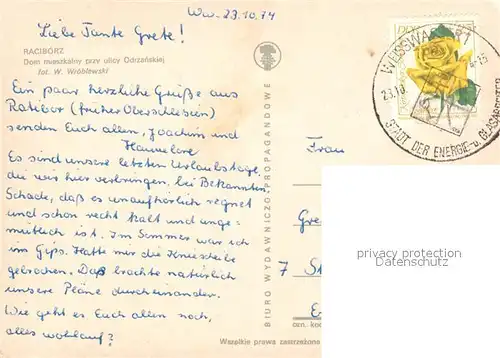 Ww. 23.10.74
Liebe Tante Grete!
RACIBÓRZ
Dom mieszkalny przy ulicy Odrzańskiej
fot. W. Wróblewski
Ein paar herzliche Grüße aus
Ratibor (früher Oberschlesien)
senden Euch allen, Joachim und
Hannelore
Es sind unsere letzten Urlaubstage,
die wir hier verbringen, bei Bekannten.
Schade, daß es unaufhörlich regnet
und schon recht kalt und unge-
mütlich ist. Im Sommer war ich
im Gips. Hatte mir die Kniescheibe
gebrochen. Das brachte natürlich
unsere Pläne durcheinander.
Wie geht es Euch allen noch,
alles wohlauf?
BIURO WYDAWNICZO-PROPAGANDOWE
DDR
WEISSWASSER 1
23.10.
STADT DER ENERGIE- u. GLASARBEITER
Frau
Gre
7 St
E
cen. koc
Wszelkie prawa zastrzeżone
privacy protection
Datenschutz